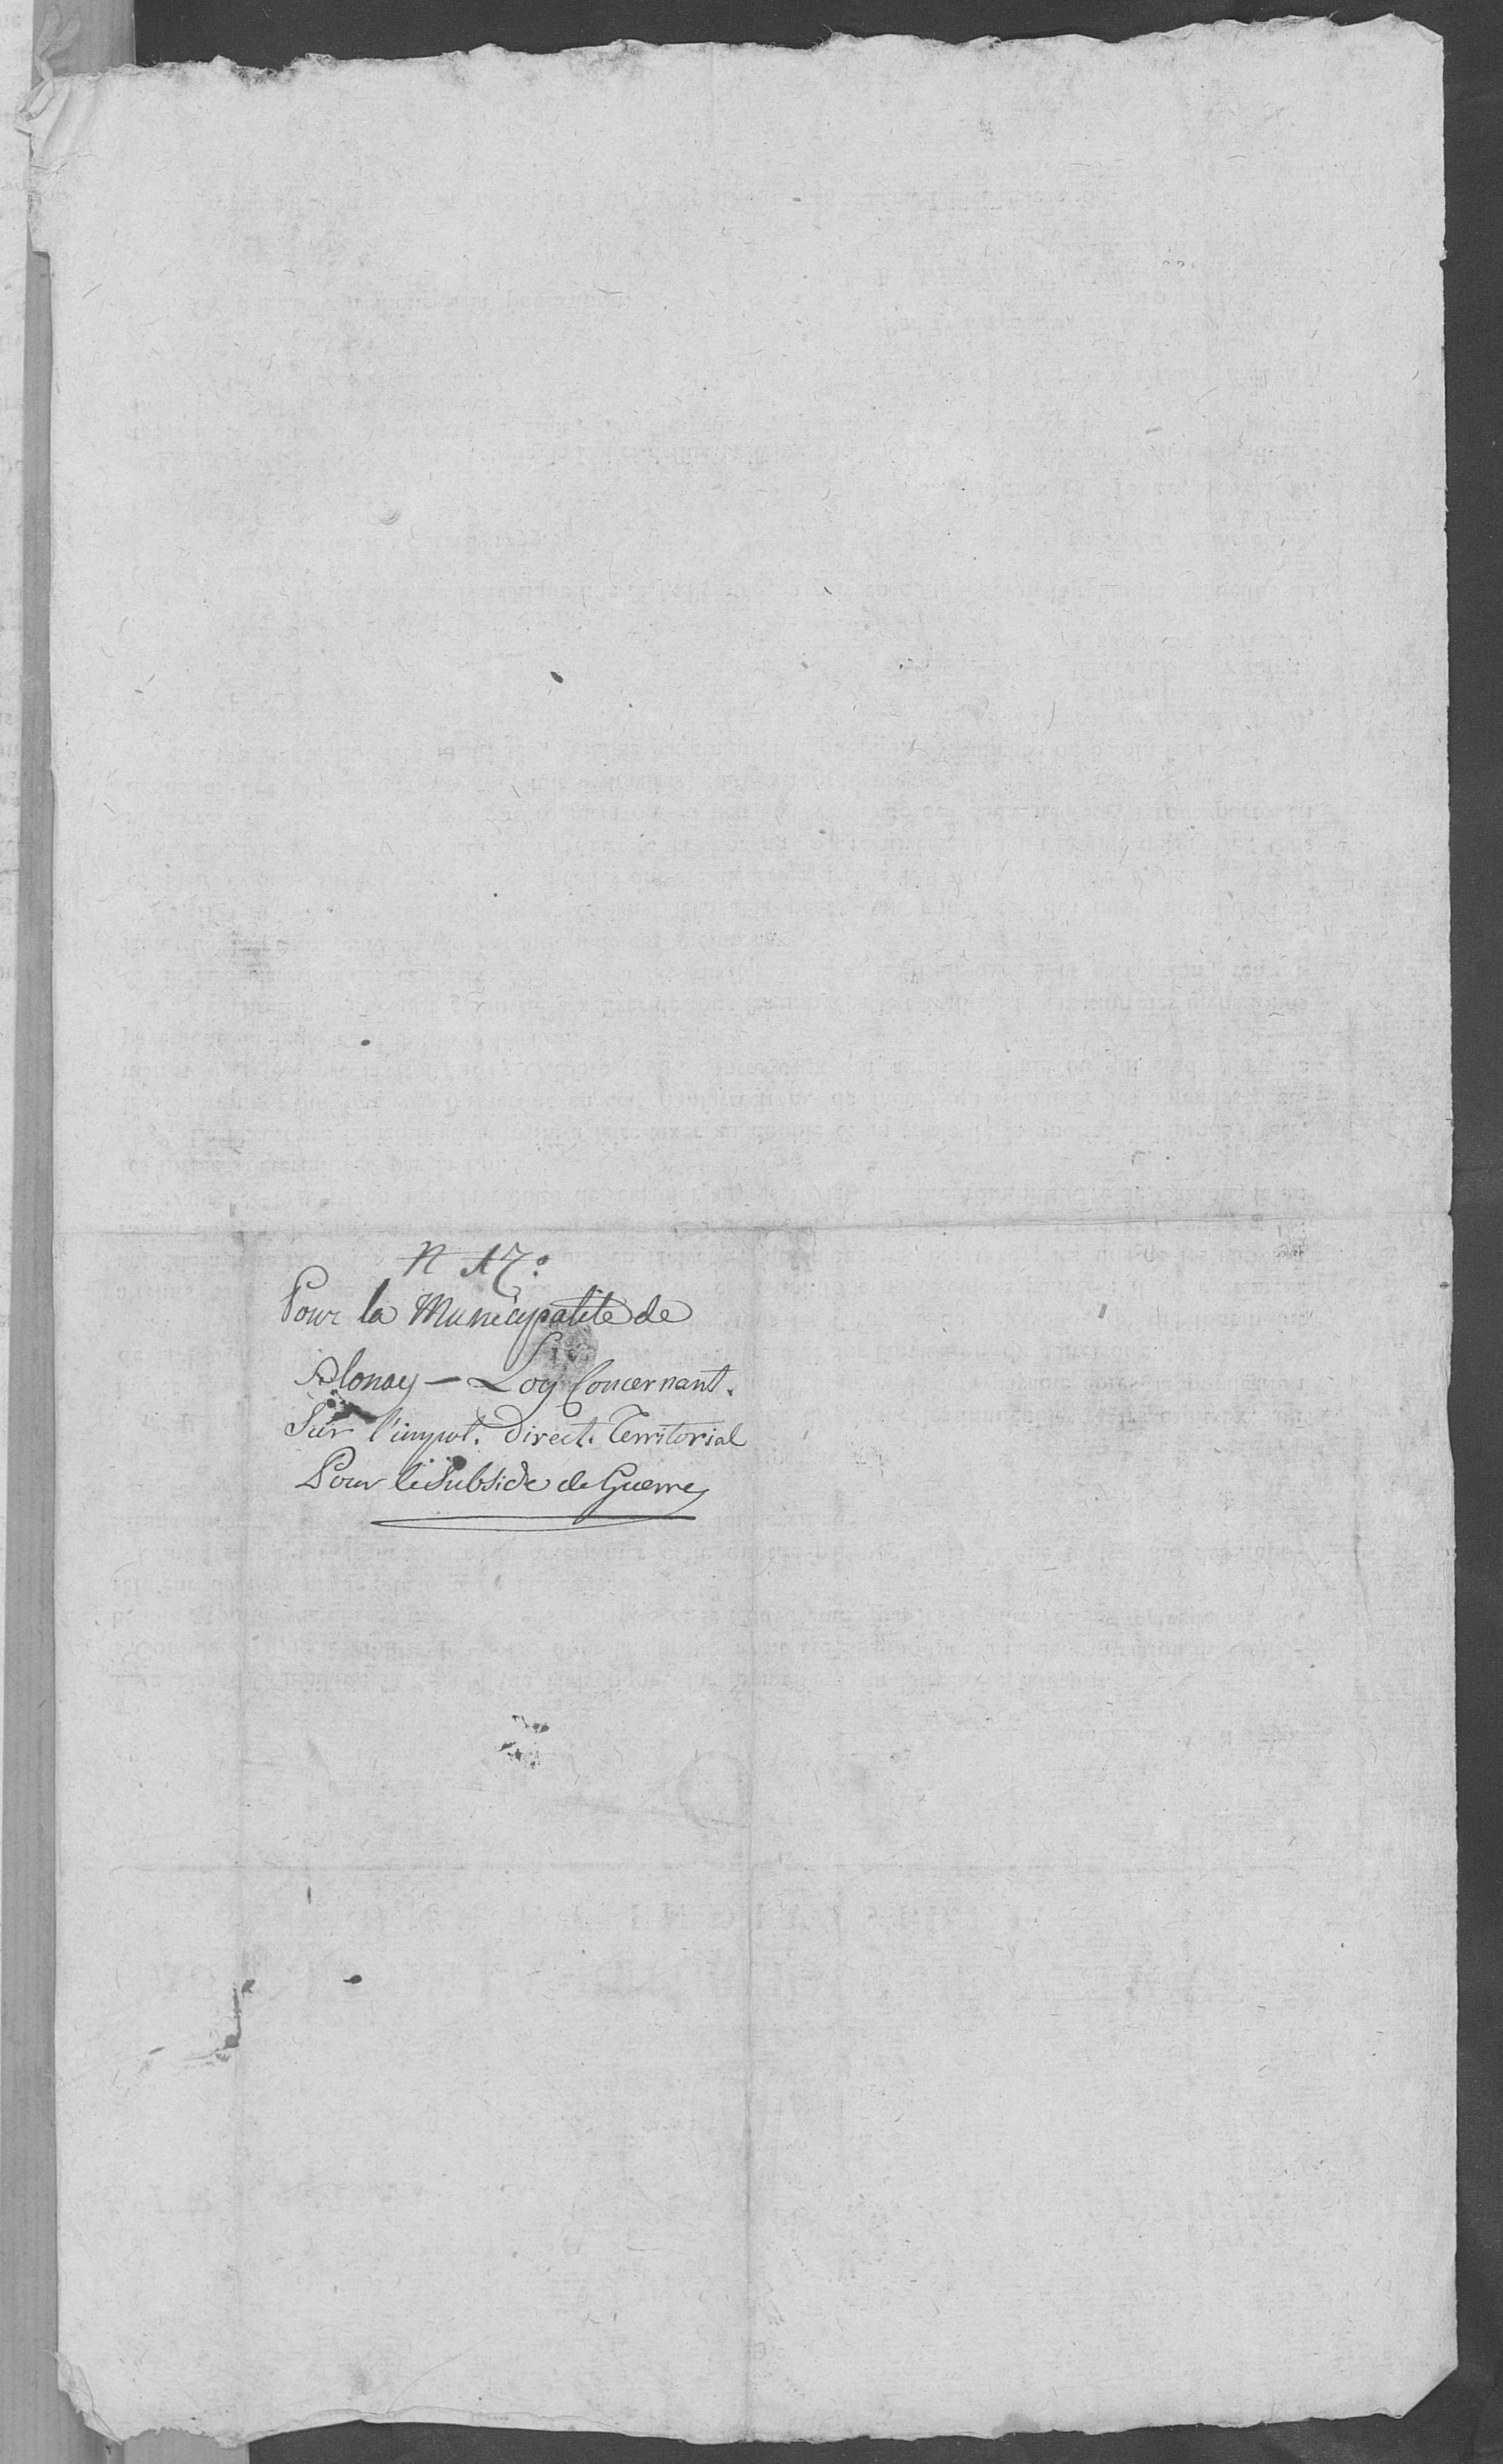 N 17:
Pour la Municipalité de
Blonay — Loy Concernant.
Sur l'impot. direct. Territorial
Pour le Subside de Guerre